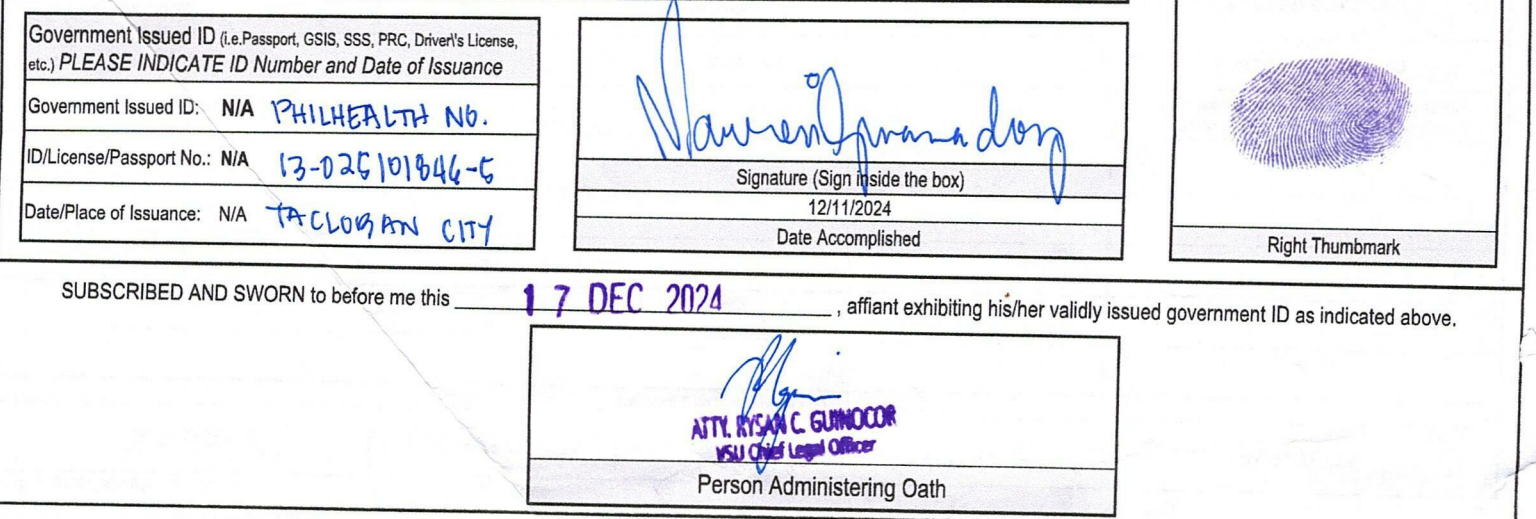 Government Issued ID (i.e.Passport, GSIS, SSS, PRC, Driver\'s License,
etc.) PLEASE INDICATE ID Number and Date of Issuance
Government Issued ID: N/A PHILHEALTH NO.
ID/License/Passport No.: N/A 13-025101846-5
Date/Place of Issuance: N/A TACLOBAN CITY
Signature (Sign inside the box)
12/11/2024
Date Accomplished
Right Thumbmark
SUBSCRIBED AND SWORN to before me this 17 DEC 2024, affiant exhibiting his/her validly issued government ID as indicated above.
ATTY. RYSAN C. GUINOCOR
VSU Chief Legal Officer
Person Administering Oath